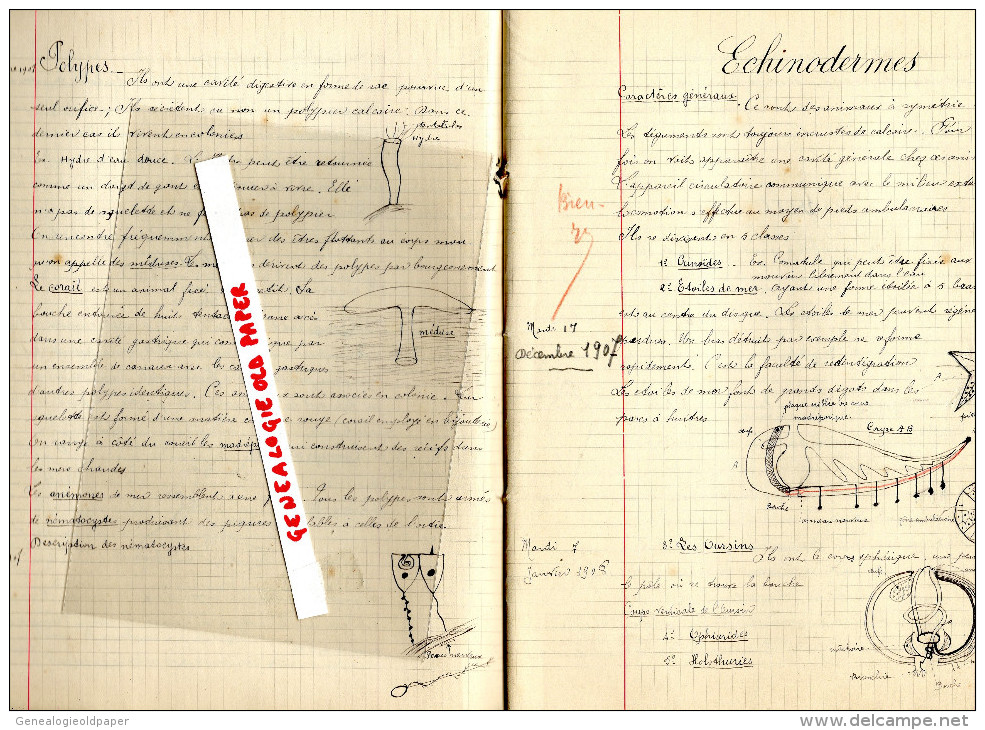 Polypes_
Ils ont une cavité digestive en forme de sac pourvue d'un
seul orifice; Ils sécrètent ou non un polypier calcaire. Dans ce
dernier cas ils vivent en colonies
Ex. Hydre d'eau douce. peut être retournée
comme un doigt de gants et à vivre. Elle
n'a pas de squelette et ne pas de polypier
On rencontre fréquemment des êtres flottants au corps mou
qu'on appelle des méduses. Les dérivent des polypes par bourgeonnement
Le corail est un animal fixé La
bouche entourée de huit
dans une cavité gastrique qui par
un ensemble de canaux avec les gastriques
d'autres polypes identiques. Ces sont associés en colonie. Leur
squelette est formé d'une matière rouge (corail employé en bijouterie)
On range à côté du corail les qui construisent des récifs dans
les mers chaudes
Les anémones de mer ressemblent à une Tous les polypes sont armés
de nématocystes produisant des piqures à celles de l'ortie.
Description des nématocystes
tentacules
Hydre
méduse
GENEALOGIE OLD PAPER
Bien
Mardi 17
Décembre 1907
Mardi 7
Janvier 1908
Echinodermes
Caractères généraux. Ce sont des animaux à symétrie
Les téguments sont toujours incrustés de calcaire. Pour
fois on voit apparaître une cavité générale chez ces ani
L'appareil circulatoire communique avec le milieu exté
locomotion s'effectue au moyen de pieds ambulacraires
Ils se divisent en 5 classes
1º Crinoïdes. Ex. Comatule qui peut être fixée aux
mouvoir librement dans l'eau
2º Etoiles de mer, ayant une forme étoilée à 5 bras
est au centre du disque. Les étoiles de mer peuvent régéné
perdus. Un bras détruit par exemple se reforme
rapidement. C'est la faculté de redintégration
Les étoiles de mer font de grands dégats dans les
parcs à huîtres
plaque
madréporique
Coupe AB
anus
A
B
Bouche
anneau nerveux
3º Les Oursins Ils ont le corps sphérique, une
le pôle où se trouve la bouche
Coupe verticale de l'Oursin
4º Ophiurides
5º Holothuries
Bouche
Genealogieoldpaper
www.delcampe.net